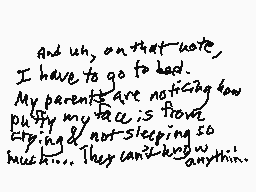 And uh, on that note,
I have to go to bed.
My parents are noticing how
puffy my face is from
crying & not sleeping so
much... They can't know
anythin.